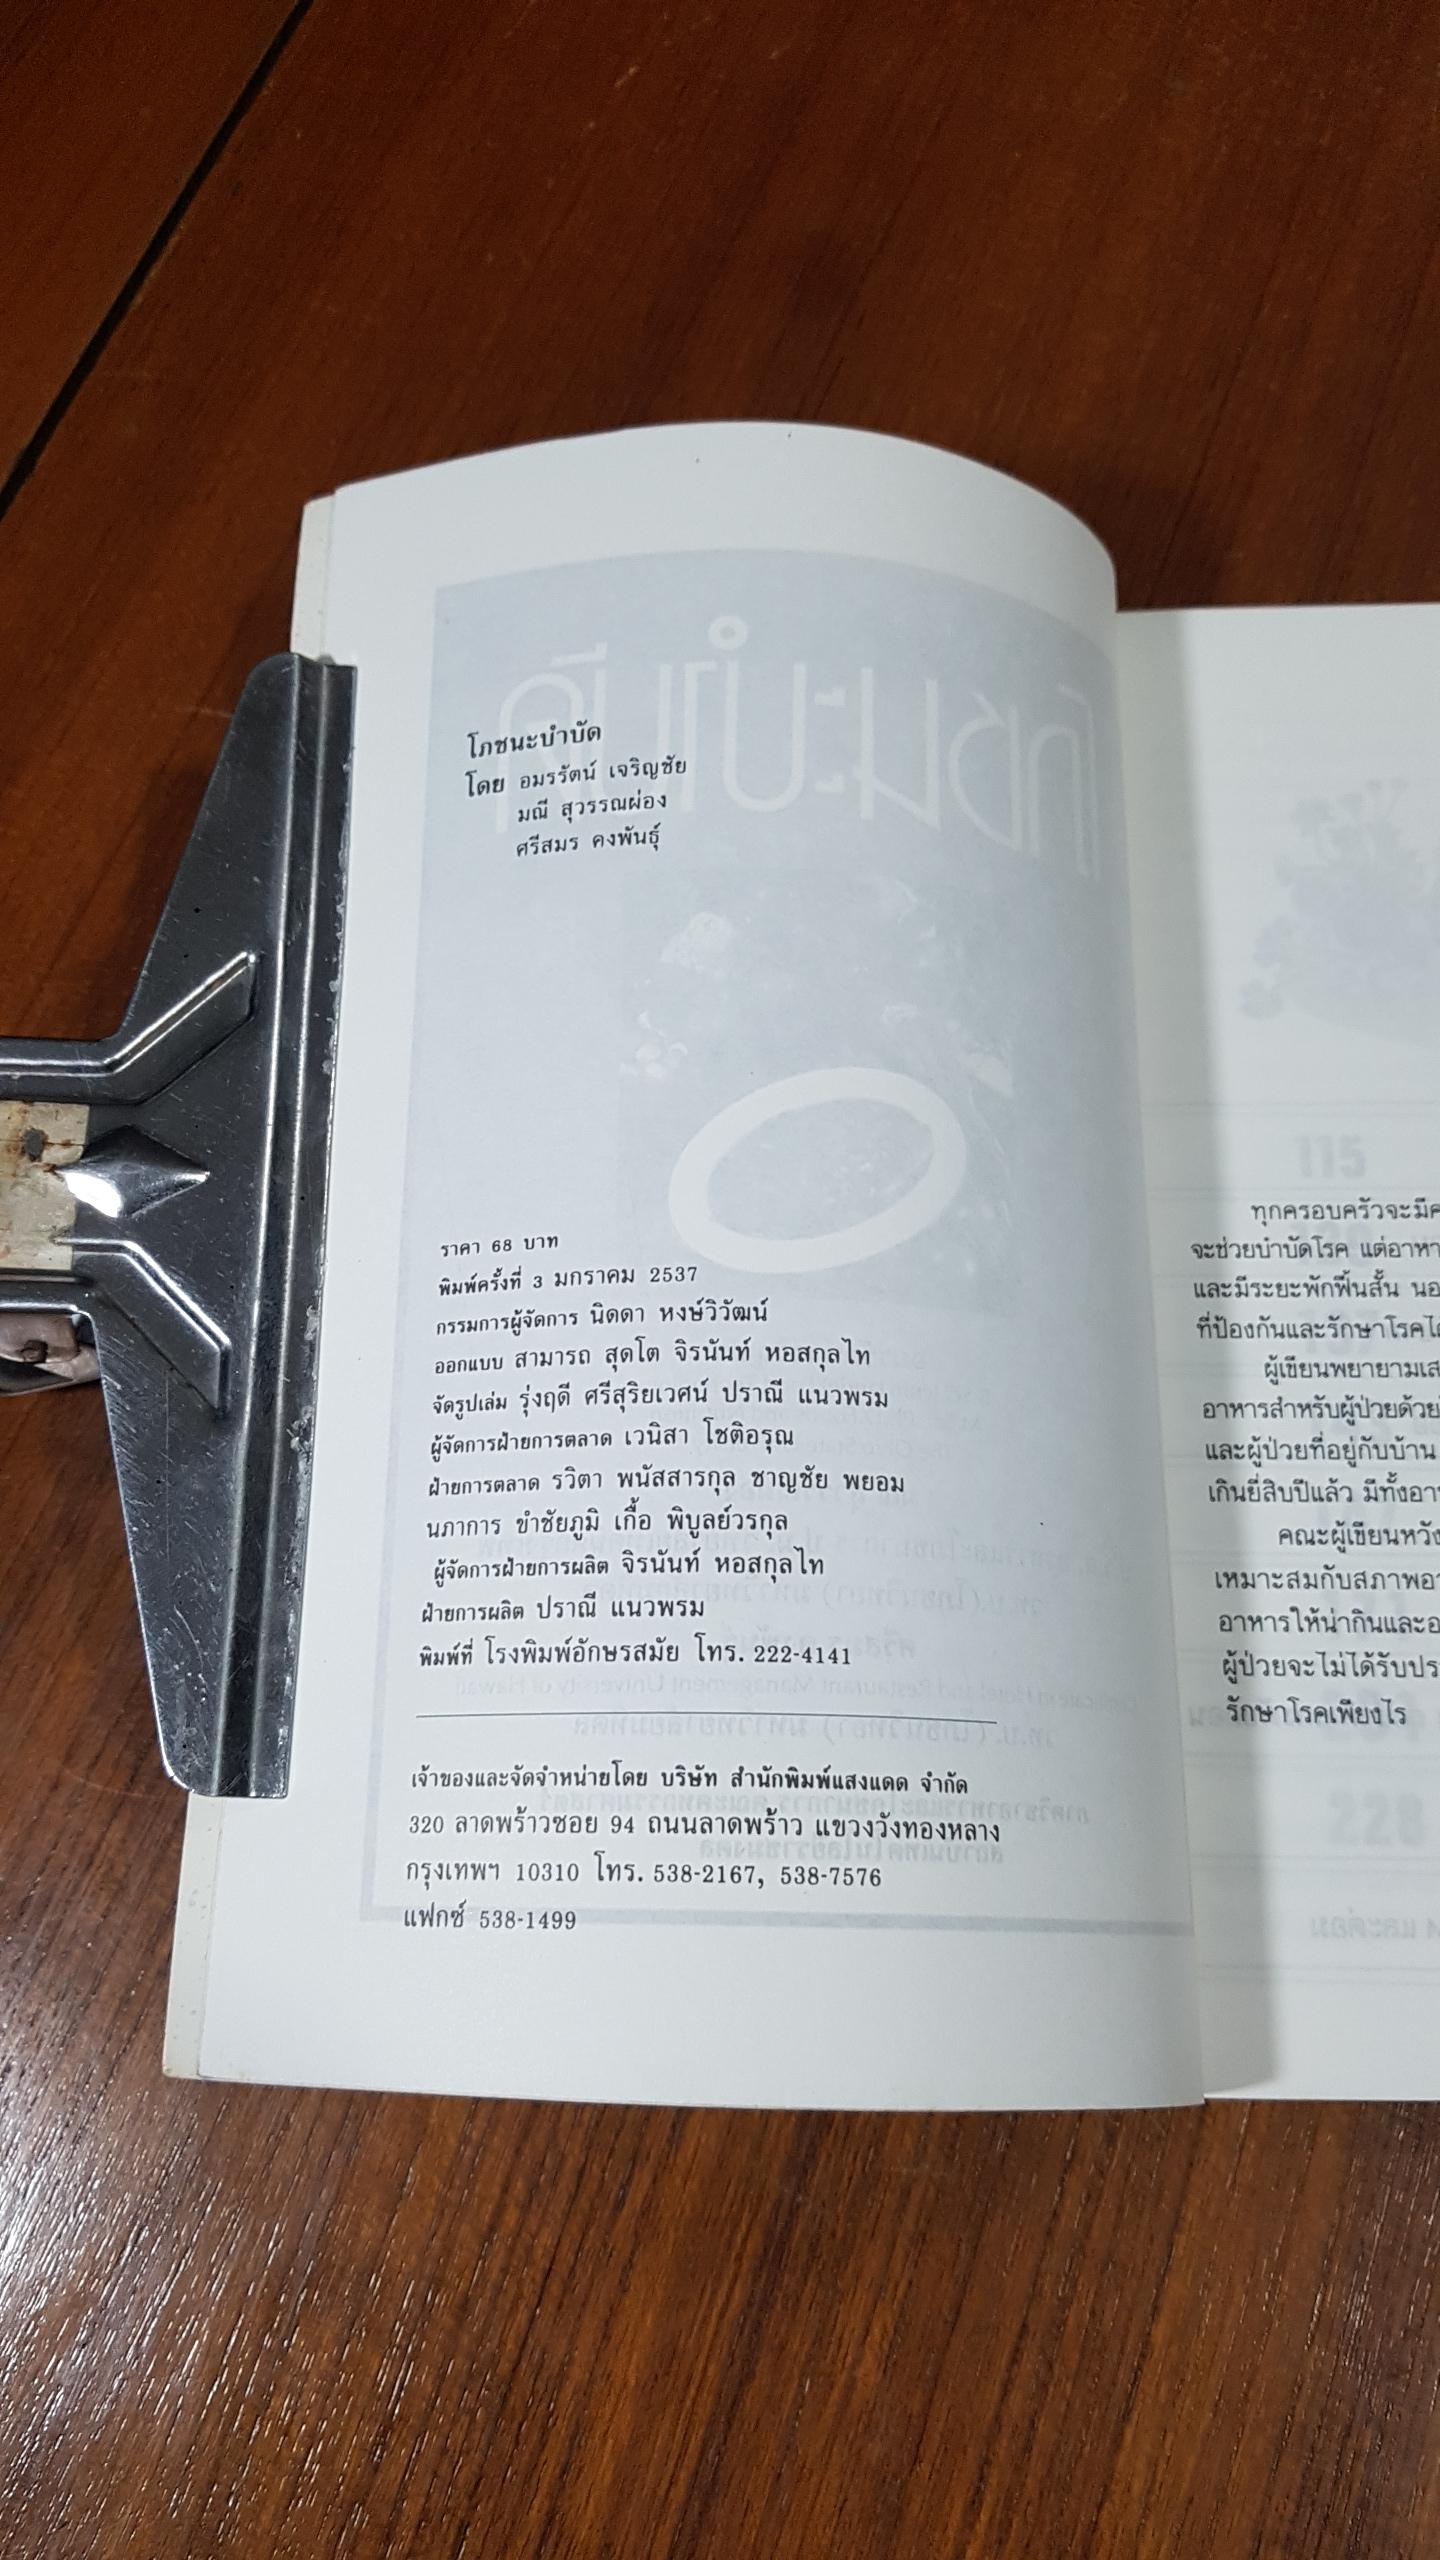 โภชนะบำบัด
โดย อมรรัตน์ เจริญชัย
มณี สุวรรณผ่อง
ศรีสมร คงพันธุ์
ราคา 68 บาท
พิมพ์ครั้งที่ 3 มกราคม 2537
กรรมการผู้จัดการ นิดดา หงษ์วิวัฒน์
ออกแบบ สามารถ สุดโต จิรนันท์ หอสกุลไท
จัดรูปเล่ม รุ่งฤดี ศรีสุริยเวศน์ ปราณี แนวพรม
ผู้จัดการฝ่ายการตลาด เวนิสา โชติอรุณ
ฝ่ายการตลาด รวิตา พนัสสารกุล ชาญชัย พยอม
นภาการ ขำชัยภูมิ เกื้อ พิบูลย์วรกุล
ผู้จัดการฝ่ายการผลิต จิรนันท์ หอสกุลไท
ฝ่ายการผลิต ปราณี แนวพรม
พิมพ์ที่ โรงพิมพ์อักษรสมัย โทร. 222-4141
เจ้าของและจัดจำหน่ายโดย บริษัท สำนักพิมพ์แสงแดด จำกัด
320 ลาดพร้าวซอย 94 ถนนลาดพร้าว แขวงวังทองหลาง
กรุงเทพฯ 10310 โทร. 538-2167, 538-7576
แฟกซ์ 538-1499
ทุกครอบครัวจะมี
จะช่วยบำบัดโรค แต่อาหา
และมีระยะพักฟื้นสั้น นอ
ที่ป้องกันและรักษาโรคได้
ผู้เขียนพยายามเส
อาหารสำหรับผู้ป่วยด้วย
และผู้ป่วยที่อยู่กับบ้าน
เกินยี่สิบปีแล้ว มีทั้งอา
คณะผู้เขียนหวัง
เหมาะสมกับสภาพอา
อาหารให้น่ากินและอ
ผู้ป่วยจะไม่ได้รับประ
รักษาโรคเพียงไร